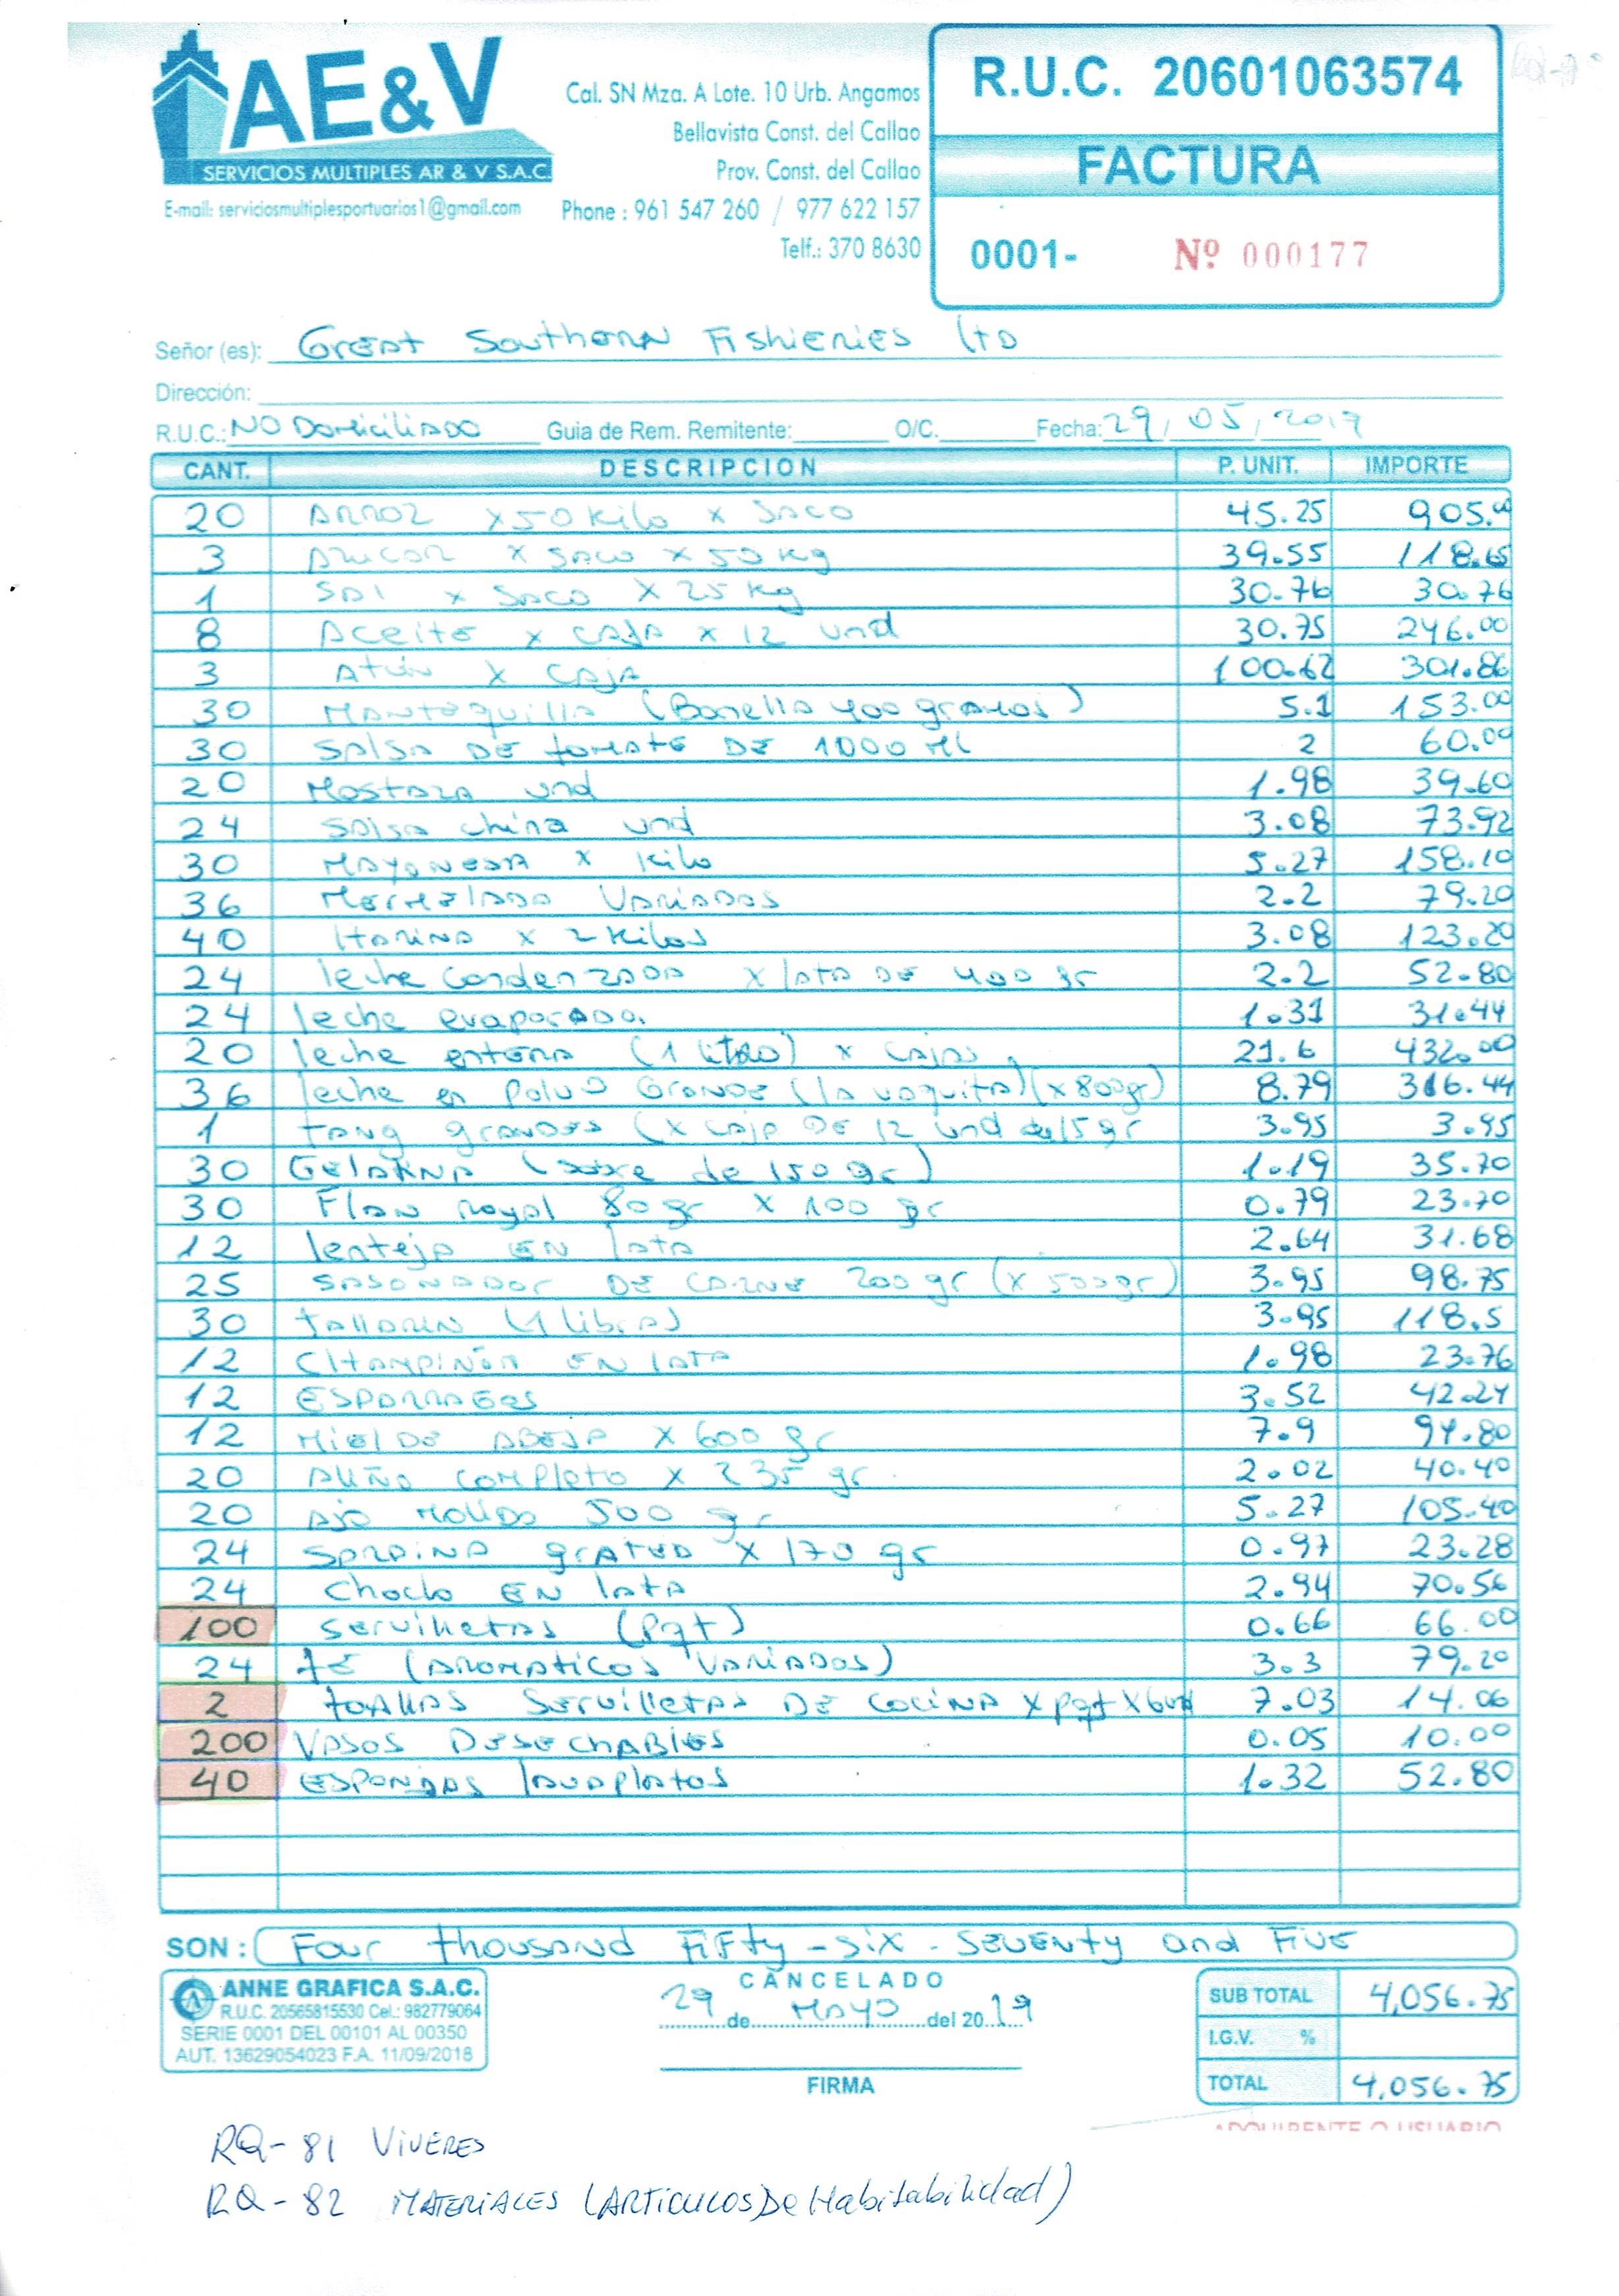 AE&V
SERVICIOS MULTIPLES AR & V S.A.C.
E-mail: serviciosmultiplesportuarios1@gmail.com
Cal. SN Mza. A Lote. 10 Urb. Angamos
Bellavista Const. del Callao
Prov. Const. del Callao
Phone : 961 547 260 / 977 622 157
Telf.: 370 8630
R.U.C. 20601063574
FACTURA
0001- Nº 000177
Señor (es): Great Southern Fishieries Ltd
Dirección:
R.U.C.: NO Domiciliado Guia de Rem. Remitente: O/C. Fecha: 29/05/2019
CANT. DESCRIPCION P. UNIT. IMPORTE
20 Arroz x50 Kilo x Saco 45.25 905.00
3 Azucar x saco x 50 kg 39.55 118.65
1 Sal x Saco x 25 kg 30.76 30.76
8 Aceite x caja x 12 und 30.75 246.00
3 Atún x caja 100.62 301.86
30 Mantequilla (Bonella 400 gramos) 5.1 153.00
30 Salsa DE tomate DE 1000 Ml 2 60.00
20 Mostaza und 1.98 39.60
24 Salsa china und 3.08 73.92
30 Mayonesa x Kilo 5.27 158.10
36 Mermelada Variadas 2.2 79.20
40 Harina x 2 Kilos 3.08 123.20
24 leche Condenzada x lata DE 400 gr 2.2 52.80
24 leche evaporada. 1.31 31.44
20 leche entera (1 litro) x cajas 21.6 432.00
36 leche en Polvo Grande (la vaquita) (x 800gr) 8.79 316.44
1 tang grandes (x caja DE 12 und de 15 gr 3.95 3.95
30 Gelatina (sobre de 150 gr) 1.19 35.70
30 Flan royal 80 gr x 100 gr 0.79 23.70
12 lenteja EN lata 2.64 31.68
25 Sasonador DE carne 200 gr (x 500gr) 3.95 98.75
30 tallarin (1 libra) 3.95 118.5
12 CHampiñon EN lata 1.98 23.76
12 ESparragos 3.52 42.24
12 Miel DE Abeja x 600 gr 7.9 94.80
20 Aliño completo x 235 gr. 2.02 40.40
20 Ajo Molido 500 gr 5.27 105.40
24 Sardina grated x 170 gr 0.97 23.28
24 Choclo EN lata 2.94 70.56
100 Servilletas (Pqt) 0.66 66.00
24 té (Aromaticos Variados) 3.3 79.20
2 toallas Servilletas DE Cocina x pqt x 6und 7.03 14.06
200 Vasos Desechables 0.05 10.00
40 ESponjas lavaplatos 1.32 52.80
SON : Four thousand Fifty-six - Seventy and Five
ANNE GRAFICA S.A.C.
R.U.C. 20565815530 Cel.: 982779064
SERIE 0001 DEL 00101 AL 00350
AUT. 13629054023 F.A. 11/09/2018
CANCELADO
29 de Mayo del 2019
FIRMA
SUB TOTAL 4,056.75
I.G.V. %
TOTAL 4,056.75
ADQUIRENTE O USUARIO
RQ-81 VIVERES
RQ-82 MATERIALES (ARTICULOS De Habitabilidad)